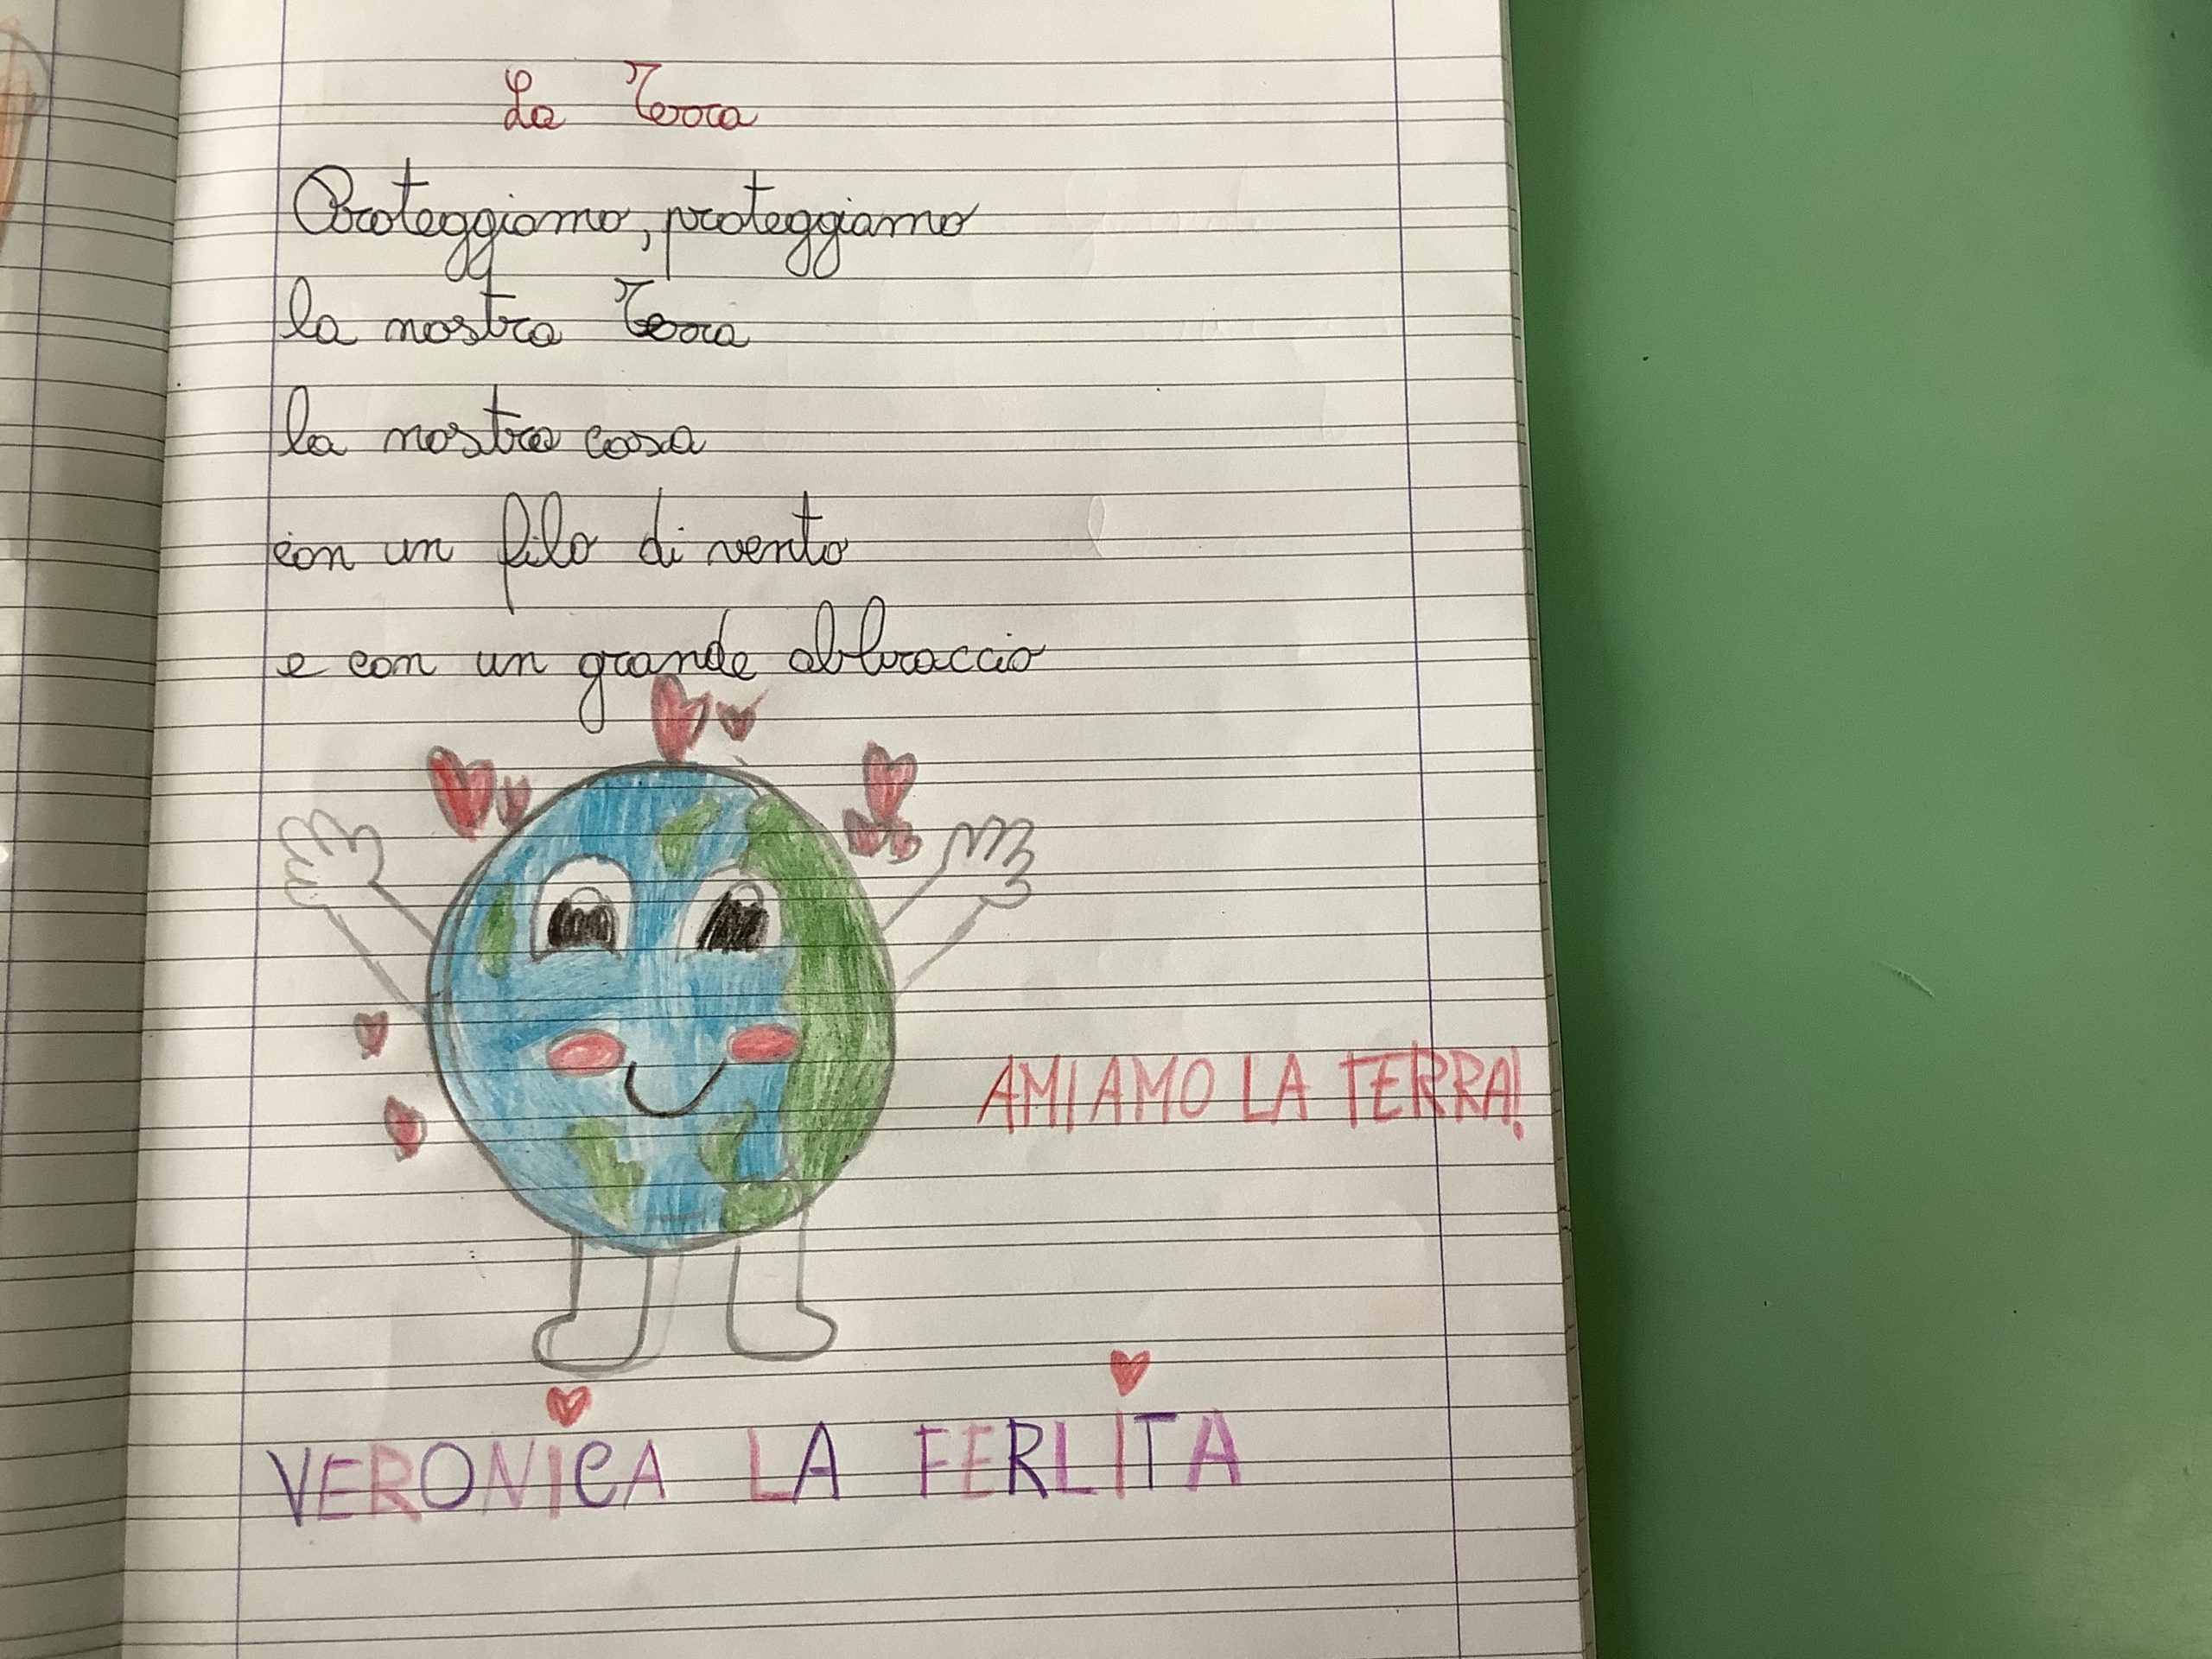 La Terra
Proteggiamo, proteggiamo
la nostra Terra
la nostra casa
con un filo di vento
e con un grande abbraccio
AMIAMO LA TERRA!
VERONICA LA FERLITA